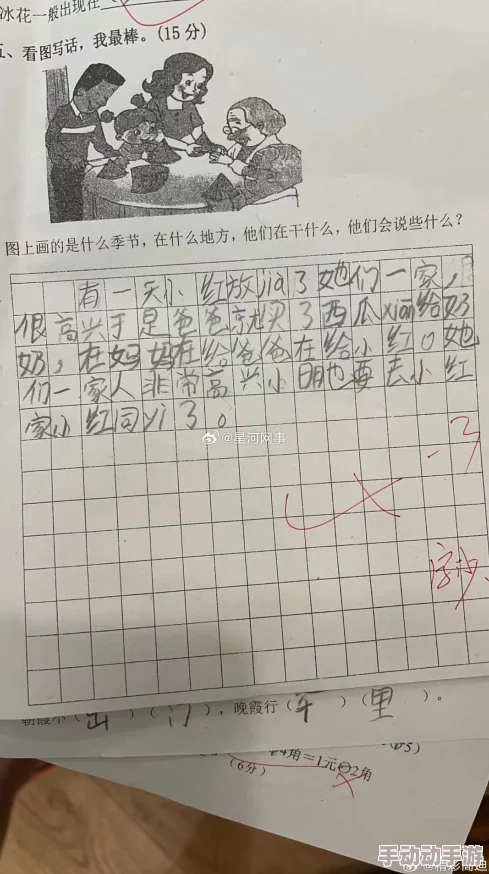 冰花一般出现在
五、看图写话，我最棒。(15 分)
图上画的是什么季节，在什么地方，他们在干什么，他们会说些什么？
有一天小红放jia了她们一家人
很高兴于是爸爸就买了西瓜xian给奶
奶，在妈妈在给爸爸在给小红。她
们一家人非常高兴小明也要去小红
家小红同yi了。
@星河网事
-3
字少
朝霞不（出）（门），晚霞行（千）（里）。
4角＝1元○2角
(6分)
手动动手游